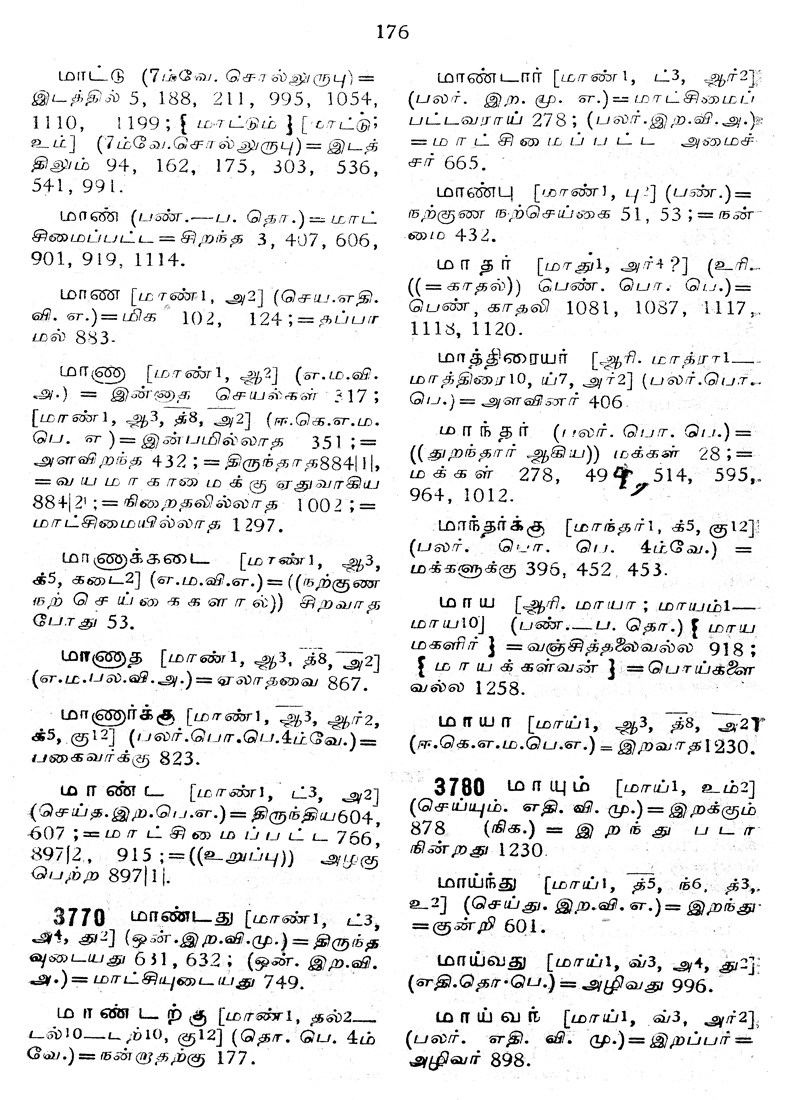 176
மாட்டு (7ம்வே. சொல்லுருபு)=
இடத்தில் 5, 188, 211, 995, 1054,
1110, 1199; { மாட்டும் } [மாட்டு;
உம்] (7ம்வே.சொல்லுருபு)=இடத்
திலும் 94, 162, 175, 303, 536,
541, 991.
மாண் (பண்.—ப. தொ.)=மாட்
சிமைப்பட்ட=சிறந்த 3, 407, 606,
901, 919, 1114.
மாண [மாண்1, அ2] (செய.எதி.
வி. எ.)=மிக 102, 124;=தப்பா
மல் 883.
மாணா [மாண்1, ஆ2] (எ.ம.வி.
அ.) = இன்னாத செயல்கள் 317;
[மாண்1, ஆ3, த்8, அ2] (ஈ.கெ.எ.ம.
பெ. எ )=இன்பமில்லாத 351;=
அளவிறந்த 432;=திருந்தாத884|1|,
=வயமாகாமைக்கு ஏதுவாகிய
884|2|;=நிறைதலில்லாத 1002;=
மாட்சிமையில்லாத 1297.
மாணாக்கடை [மாண்1, ஆ3,
க்5, கடை2] (எ.ம.வி.எ.)=((நற்குண
நற் செய்கைகளால்)) சிறவாத
போது 53.
மாணாத [மாண்1, ஆ3, த்8, அ2]
(எ.ம.பல.வி.அ.)=ஏலாதவை 867.
மாணார்க்கு [மாண்1, ஆ3, ஆர்2,
க்5, கு12] (பலர்.பொ.பெ.4ம்வே.)=
பகைவர்க்கு 823.
மாண்ட [மாண்1, ட்3, அ2]
(செய்த.இற.பெ.எ.)=திருந்திய604,
607;=மாட்சிமைப்பட்ட 766,
897|2, 915;=((உறுப்பு)) அழகு
பெற்ற 897|1|.
3770 மாண்டது [மாண்1, ட்3,
அ4, து2] (ஒன்.இற.வி.மு.)=திருந்த
வுடையது 631, 632; (ஒன். இற.வி.
அ.)=மாட்சியுடையது 749.
மாண்டற்கு [மாண்1, தல்2—
டல்10—டற்10, கு12] (தொ. பெ. 4ம்
வே.)=நன்றாதற்கு 177.
மாண்டார் [மாண்1, ட்3, ஆர்2]
(பலர். இற. மு. எ.)=மாட்சிமைப்
பட்டவராய் 278; (பலர்.இற.வி.அ.)
=மாட்சிமைப்பட்ட அமைச்
சர் 665.
மாண்பு [மாண்1, பு2] (பண்.)=
நற்குண நற்செய்கை 51, 53;=நன்
மை 432.
மாதர் [மாது1, அர்4?] (உரி.
((=காதல்)) பெண். பொ. பெ.)=
பெண், காதலி 1081, 1087, 1117,
1118, 1120.
மாத்திரையர் [ஆரி. மாத்ரா1—
மாத்திரை10, ய்7, அர்2] (பலர்.பொ.
பெ.)=அளவினர் 406
மாந்தர் (பலர். பொ. பெ.)=
((துறந்தார் ஆகிய)) மக்கள் 28;=
மக்கள் 278, 499, 514, 595,
964, 1012.
மாந்தர்க்கு [மாந்தர்1, க்5, கு12]
(பலர். பொ. பெ. 4ம்வே.) =
மக்களுக்கு 396, 452, 453.
மாய [ஆரி. மாயா; மாயம்1—
மாய10] (பண்.—ப. தொ.) { மாய
மகளிர் }=வஞ்சித்தலைவல்ல 918;
{ மாயக்கள்வன் }=பொய்களை
வல்ல 1258.
மாயா [மாய்1, ஆ3, த்8, அ2]
(ஈ.கெ.எ.ம.பெ.எ.)=இறவாத1230.
3780 மாயும் [மாய்1, உம்2]
(செய்யும். எதி. வி. மு.)=இறக்கும்
878 (நிக.) = இறந்து படா
நின்றது 1230.
மாய்ந்து [மாய்1, த்5, ந்6, த்3,
உ2] (செய்து. இற.வி.எ.)=இறந்து
=குன்றி 601.
மாய்வது [மாய்1, வ்3, அ4, து2]
(எதி.தொ.பெ.)=அழிவது 996.
மாய்வர் [மாய்1, வ்3, அர்2]
(பலர். எதி. வி. மு.)=இறப்பர்=
அழிவர் 898.